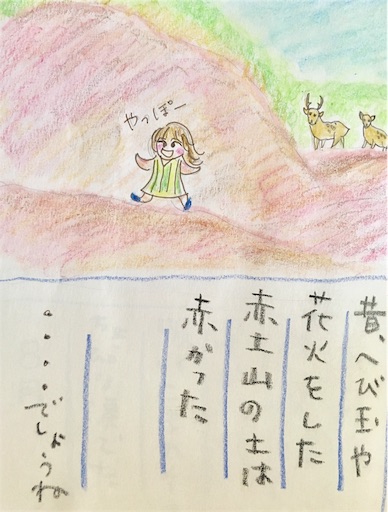 やっぽー
昔、へび玉や
花火をした
赤土山の土は
赤かった
・・・・でしょうね